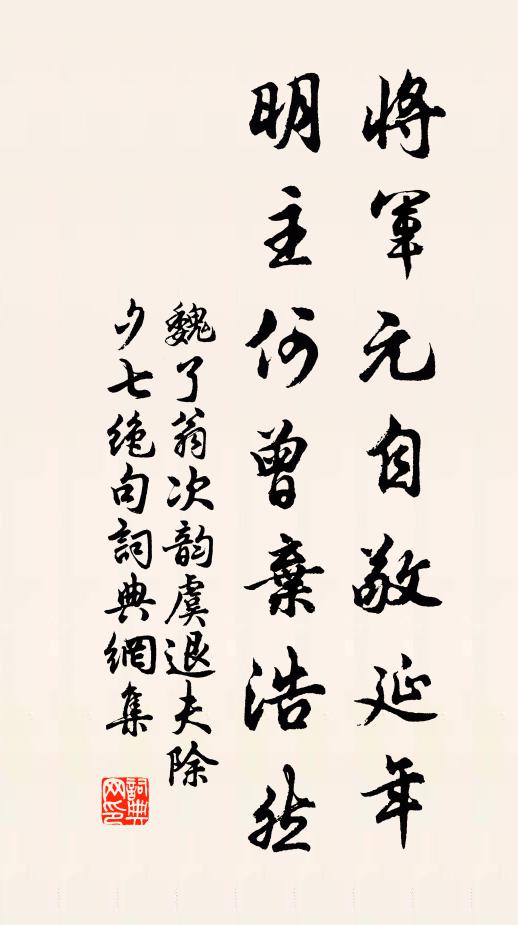 將軍元自敬延年
明主何曾棄浩然
魏了翁次韵虞退夫除
夕七絶句詞典網集
詞典
网印